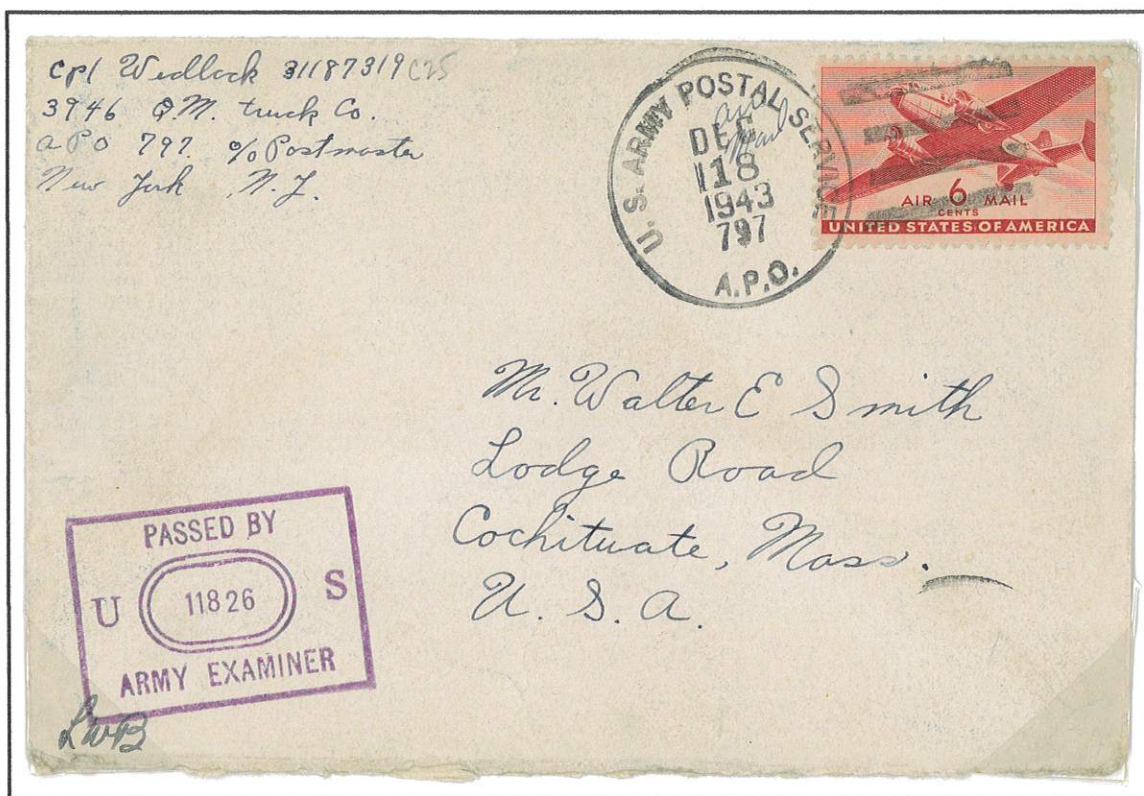 Cpl Wedlock 31187319 C25
3946 Q.M. truck Co.
aPO 797. c/o Postmaster
New York N.Y.
U.S. ARMY POSTAL SERVICE
DEC
18
1943
797
A.P.O.
Air
Mail
AIR 6 MAIL
CENTS
UNITED STATES OF AMERICA
Mr. Walter E Smith
Lodge Road
Cochituate, Mass.
U.S.A.
PASSED BY
U 11826 S
ARMY EXAMINER
LWB